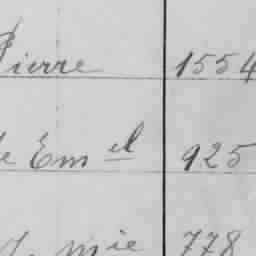 Pierre 1554
de Em el 925
mie 778